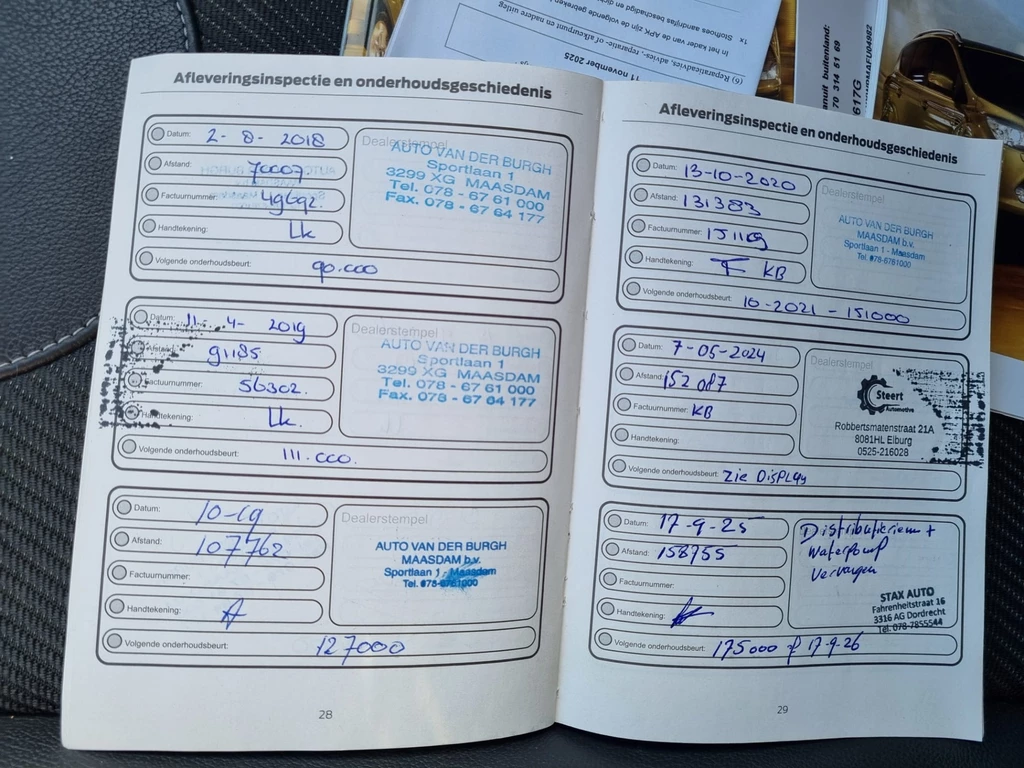 (6) Reparatieadvies, advies-, reparatie- of afkeurpunt en nadere uitleg
In het kader van de APK zijn de volgende gebreken
1x Stofhoes aandrijfas beschadigd en
11 november 2025
vanuit buitenland:
70 314 51 69
617G
Afleveringsinspectie en onderhoudsgeschiedenis
Datum: 2-8-2018
Afstand: 70007
Factuurnummer: 49692.
Handtekening: Lk
Volgende onderhoudsbeurt: 90.000
Dealerstempel
AUTO VAN DER BURGH
Sportlaan 1
3299 XG MAASDAM
Tel. 078 - 67 61 000
Fax. 078 - 67 64 177
Datum: 11-4-2019
Afstand: 91185
Factuurnummer: 56302.
Handtekening: Lk.
Volgende onderhoudsbeurt: 111.000.
Dealerstempel
AUTO VAN DER BURGH
Sportlaan 1
3299 XG MAASDAM
Tel. 078 - 67 61 000
Fax. 078 - 67 64 177
Datum: 10-19
Afstand: 107762
Factuurnummer:
Handtekening:
Volgende onderhoudsbeurt: 127000
Dealerstempel
AUTO VAN DER BURGH
MAASDAM b.v.
Sportlaan 1 - Maasdam
Tel. 078-6761000
28
Afleveringsinspectie en onderhoudsgeschiedenis
Datum: 13-10-2020
Afstand: 131383
Factuurnummer: 151169
Handtekening: KB
Volgende onderhoudsbeurt: 10-2021 - 151000
Dealerstempel
AUTO VAN DER BURGH
MAASDAM b.v.
Sportlaan 1 - Maasdam
Tel. 078-6761000
Datum: 7-05-2024
Afstand: 152087
Factuurnummer: KB
Handtekening:
Volgende onderhoudsbeurt: Zie Display
Dealerstempel
Steert
Automotive
Robbertsmatenstraat 21A
8081HL Elburg
0525-216028
Datum: 17-9-25
Afstand: 158755
Factuurnummer:
Handtekening:
Volgende onderhoudsbeurt: 175000 of 17-9-26
Distributieriem +
Waterpomp
Vervangen
STAX AUTO
Fahrenheitstraat 16
3316 AG Dordrecht
Tel. 078-7855544
29